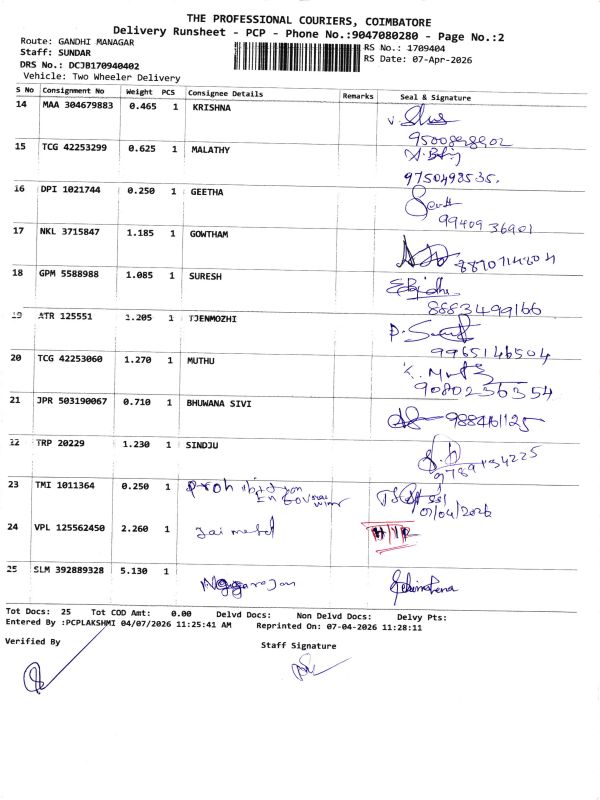 THE PROFESSIONAL COURIERS, COIMBATORE
Delivery Runsheet - PCP - Phone No.:9047080280 - Page No.:2
Route: GANDHI MANAGAR
Staff: SUNDAR
DRS No.: DCJB170940402
Vehicle: Two Wheeler Delivery
RS No.: 1709404
RS Date: 07-Apr-2026
S No Consignment No Weight PCS Consignee Details Remarks Seal & Signature
14 MAA 304679883 0.465 1 KRISHNA
15 TCG 42253299 0.625 1 MALATHY
9750498535.
16 DPI 1021744 0.250 1 GEETHA
99409 36901
17 NKL 3715847 1.185 1 GOWTHAM
18 GPM 5588988 1.085 1 SURESH
8883499166
19 ATR 125551 1.205 1 TJENMOZHI
9965146504
20 TCG 42253060 1.270 1 MUTHU
9080256354
21 JPR 503190067 0.710 1 BHUWANA SIVI
22 TRP 20229 1.230 1 SINDJU
23 TMI 1011364 0.250 1
07/04/2026
24 VPL 125562450 2.260 1
25 SLM 392889328 5.130 1
Tot Docs: 25 Tot COD Amt: 0.00 Delvd Docs: Non Delvd Docs: Delvy Pts:
Entered By :PCPLAKSHMI 04/07/2026 11:25:41 AM Reprinted On: 07-04-2026 11:28:11
Verified By
Staff Signature